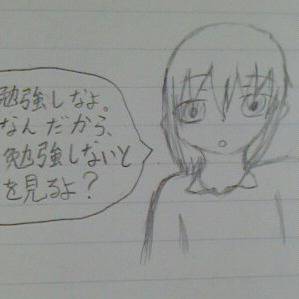 勉強しなよ。
なんだから、
勉強しないと
を見るよ？